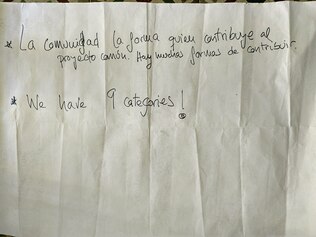 * La comunidad la forma quien contribuye al
proyecto común. Hay muchas formas de contribuir.
* We have 9 categories!